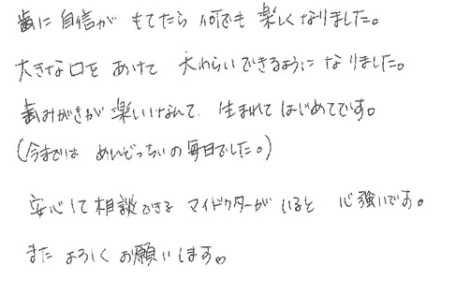 歯に自信がもてたら何でも楽しくなりました。
大きな口をあけて大わらいできるようになりました。
歯みがきが楽しいなんて生まれてはじめてです。
(今までは めんどっちいの毎日でした。)
安心して相談できるマイドクターがいると心強いです。
また よろしくお願いします。